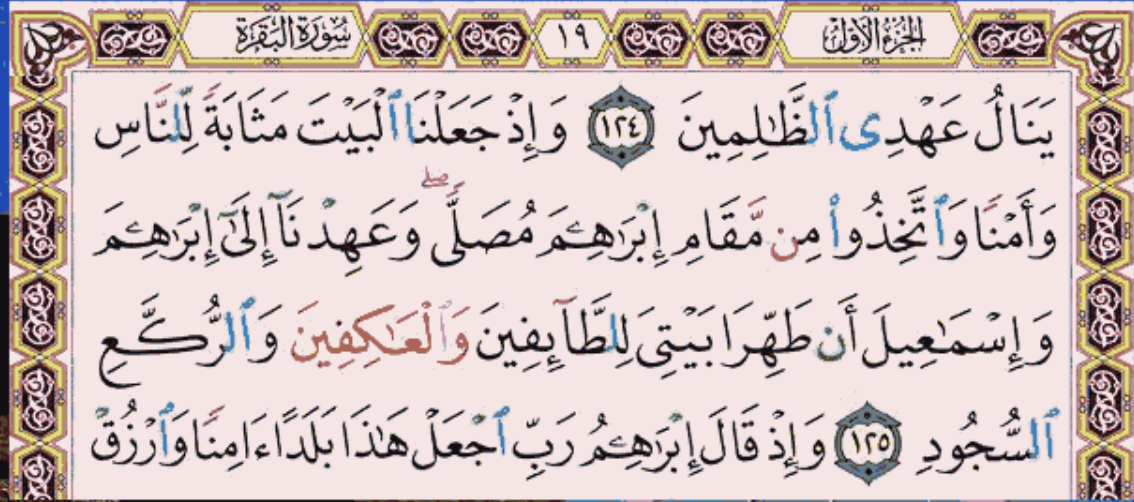 الجزء الأول ١٩ سورة البقرة
يَنَالُ عَهْدِى ٱلظَّـٰلِمِينَ ١٢٤ وَإِذْ جَعَلْنَا ٱلْبَيْتَ مَثَابَةً لِّلنَّاسِ
وَأَمْنًا وَٱتَّخِذُوا۟ مِن مَّقَامِ إِبْرَٰهِـۧمَ مُصَلًّى ۖ وَعَهِدْنَآ إِلَىٰٓ إِبْرَٰهِـۧمَ
وَإِسْمَـٰعِيلَ أَن طَهِّرَا بَيْتِىَ لِلطَّآئِفِينَ وَٱلْعَـٰكِفِينَ وَٱلرُّكَّعِ
ٱلسُّجُودِ ١٢٥ وَإِذْ قَالَ إِبْرَٰهِـۧمُ رَبِّ ٱجْعَلْ هَـٰذَا بَلَدًا ءَامِنًا وَٱرْزُقْ